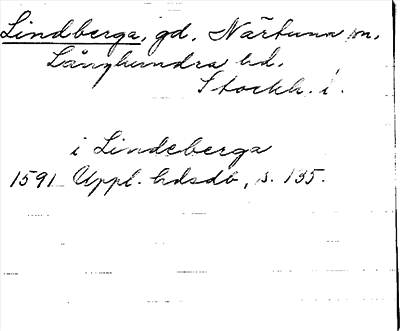 Lindberga, gd, Närtuna sn,
Långhundra hd.
Stockh. l.
i Lindeberga
1591 Uppl. hdsdb, s. 135.